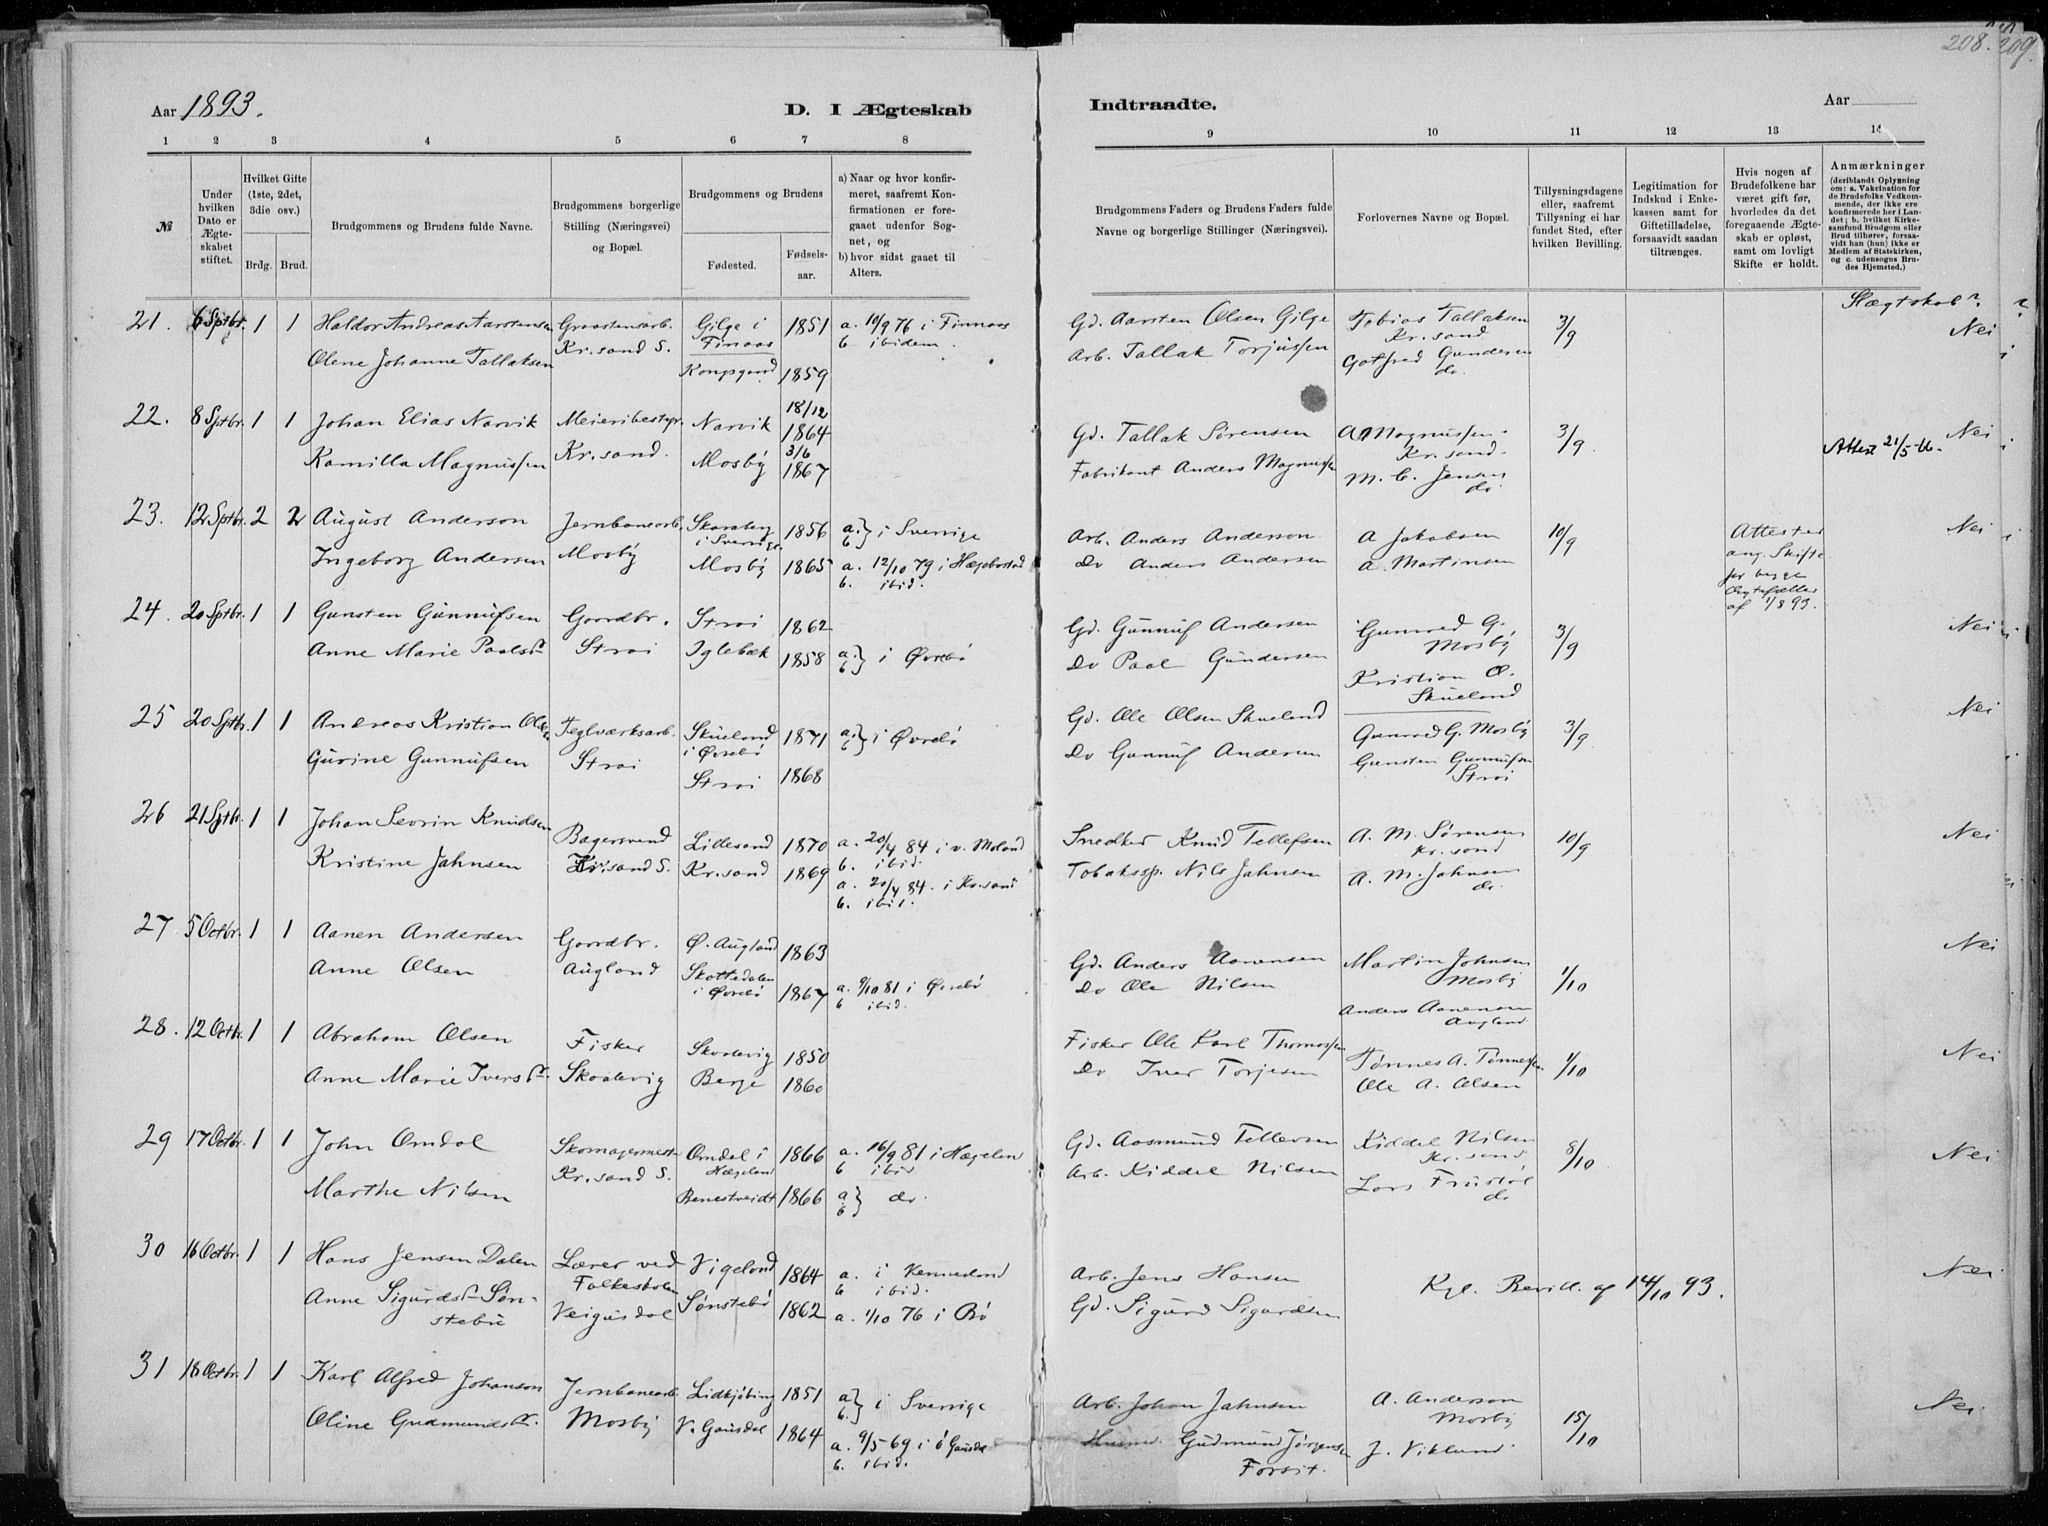 208. 209.
Aar 1893.
D. I Ægteskab
Indtraadte.
Aar
1 2 3 4 5 6 7 8 9 10 11 12 13 14
№
Under hvilken Dato er Ægteskabet stiftet.
Hvilket Gifte (1ste, 2det, 3die osv.)
Brdg. Brud.
Brudgommens og Brudens fulde Navne.
Brudgommens borgerlige Stilling (Næringsvei) og Bopæl.
Brudgommens og Brudens
Fødested.
Fødselsaar.
a) Naar og hvor konfirmeret, saafremt Konfirmationen er foregaaet udenfor Sognet, og
b) hvor sidst gaaet til Alters.
Brudgommens Faders og Brudens Faders fulde Navne og borgerlige Stillinger (Næringsvei).
Forlovernes Navne og Bopæl.
Tillysningsdagene eller, saafremt Tillysning ei har fundet Sted, efter hvilken Bevilling.
Legitimation for Indskud i Enkekassen samt for Giftetilladelse, forsaavidt saadan tiltrænges.
Hvis nogen af Brudefolkene har været gift før, hvorledes da det foregaaende Ægteskab er opløst, samt om lovligt Skifte er holdt.
Anmærkninger
(deriblandt Oplysning om: a. Vakcination for de Brudefolks Vedkommende, der ikke ere konfirmerede her i Landet; b. hvilket Kirkesamfund Brudgom eller Brud tilhører, forsaavidt han (hun) ikke er Medlem af Statskirken, og c. udensogns Brudes Hjemsted.)
Slægtskab?
21. 6 Sptbr. 1 1 Haldor Andreas Aarstensen Graastensarb. Gilge i 1851 a. 10/9 76 i Finnaas Gd. Aarsten Olsen Gilge Tobias Tallaksen 3/9 Nei
Kr.sand S. Finaas b. ibidem. Kr.sand
Olene Johanne Tallaksen Kongsgaard 1859 Arb. Tallak Torjussen Gotfred Gundersen
do.
22. 8 Sptbr. 1 1 Johan Elias Narvik Meieribestyr. Narvik 18/12 1864 Gd. Tallak Sørensen A. Magnussen 3/9 Nei
Kr.sand. Kr.sand.
Kamilla Magnussen Mosby 3/6 1867 Fabrikant Anders Magnussen M. C. Jensen Attest 21/5-16.
do
23. 12 Sptbr. 2 2 August Anderson Jernbanearb. Skaraberg 1856 a. b. } i Sverrige Arb. Anders Anderson A Jakobsen 10/9 Attester Nei
i Sverrige ang. Skifte
Ingeborg Andersen Mosby Mosby 1865 a. 12/10 79 i Hægebostad Do Anders Andersen A. Martinsen for begge
b. ibid. Ægtefæller
af 1/8 93.
24. 20 Sptbr. 1 1 Gunsten Gunnufsen Gaardbr. Strai 1862 Gd. Gunnuf Andersen Gunvald G. 3/9 Nei
Mosby
Anne Marie Paalsdr Strai Iglebæk 1858 a. b. } i Øvrebø Do Paal Gundersen Kristian O.
Skueland
25 20 Sptbr. 1 1 Andreas Kristian Olsen Teglværksarb. Skueland 1871 a. b. } i Øvrebø Gd. Ole Olsen Skueland Gunvald G. Mosby 3/9 Nei
i Øvrebø
Gurine Gunnufsen Strai Strai 1868 Do Gunnuf Andersen Gunsten Gunnufsen
Strai
26 21 Sptbr. 1 1 Johan Sevrin Knudsen Bagersvend Lillesand 1870 a. 20/4 84 i v. Moland Snedker Knud Tellefsen A. M. Sørensen 10/9 Nei
b. ibid. Kr.sand
Kristine Jahnsen Kr.sand S. Kr.sand 1869 a. 20/4 84. i Kr.sand Tobakssp. Nils Jahnsen A. M. Jahnsen
b. ibid. do.
27 5 Octbr. 1 1 Aanen Andersen Gaardbr. Ø. Augland 1863 Gd. Anders Aanensen Martin Johnsen 1/10 Nei
Mosby
Anne Olsen Augland Skottedalen 1867 a. 9/10 81 i Øvrebø Do Ole Nilsen Anders Aanensen
i Øvrebø b ibid. Augland
28. 12 Octbr. 1 1 Abraham Olsen Fisker Skaalevig 1850 Fisker Ole Karl Thomassen Tønnes A. Tønnessen 1/10 Nei
Anne Marie Iversdr. Skaalevig Berge 1860 Do Iver Torjesen Ole A. Olsen
29 17 Octbr. 1 1 John Omdal Skomagermest Omdal i 1866 a. 16/9 81 i Hægeland Gd. Aasmund Tellevsen Kiddel Nilsen 8/10 Nei
Kr.sand S. Hægeland b ibid Kr.sand
Marthe Nilsen Benestveidt 1866 a b } do. Arb. Kiddel Nilsen Lars Frustøl
do
30 16 Octbr. 1 1 Hans Jensen Dalen Lærer ved Vigeland 1864 a. i Vennesland Arb. Jens Hansen Kgl. Bevill. af 14/10 93. Nei
Folkeskolen b ibid.
Anne Sigurdsd. Søn- Veigusdal Sønstebø 1862 a. 1/10 76 i Bø Gd. Sigurd Sigurdsen
stebø
31 18 Octbr. 1 1 Karl Alfred Johanson Jernbanearb. Lidkjøbing 1851 a b. } i Sverrige Arb. Johan Jahnsen A. Anderson 15/10 Nei
Mosby
Oline Gudmundsdr. Mosby V. Gausdal 1864 a. 9/5-69 i ø Gausdal Husm. Gudmund Jørgensen J. Viklund.
b. ibid. Forsit.